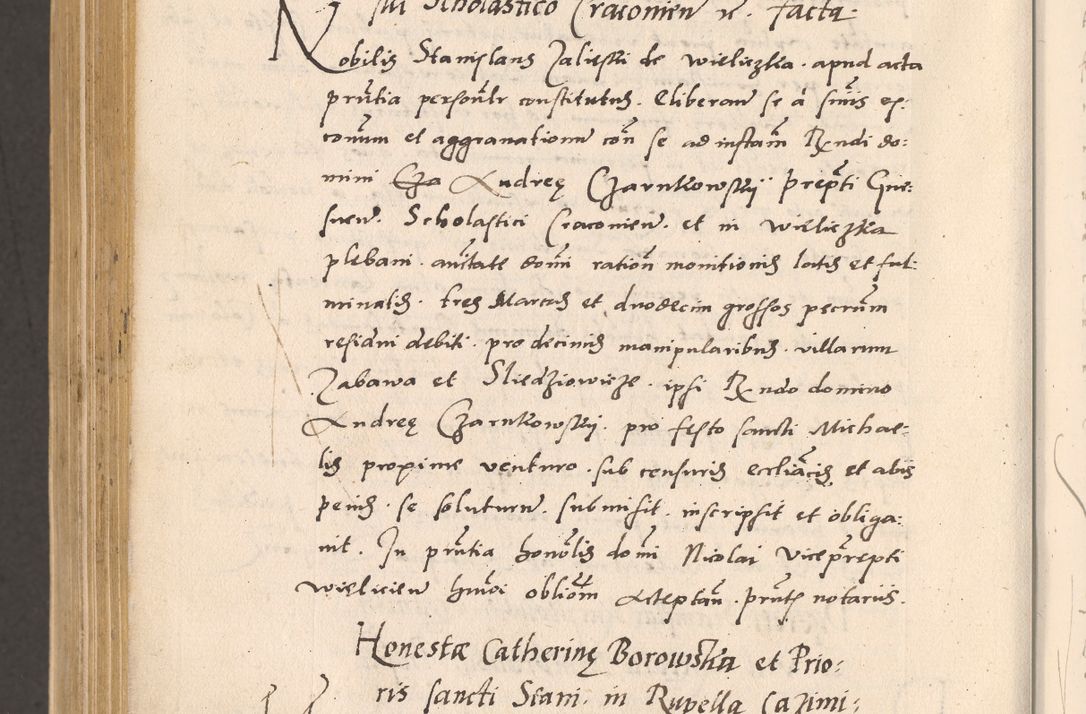 sui Scholastico Craconien̄ rc. facta.
Nobilis Stanislaus Zalieski de Wieliczka. apud acta
pr̄ntia person̄lr constitutus. Cliberan̄ se á sūis ex:
ronum et aggrauationum con̄ se ad instan̄ R̄ndi do:
mini Cza Andreę Czarnkowskij prep̄ti Gne:
snen̄. Scholastici Craconien̄. et in Wieliczka
plebani. auc̄tate dom̄i ration̄ monitionis latis et ful:
minatis. tres Marcas et duodecim grossos pecc̄um
residui debiti. pro decimis manipularibus. villarum
Zabawa et Sliedziowicze. ipsi R̄ndo domino
Andreę Czarnkowskij. pro festo sancti Michae:
lis proxime venturo. sub censuris eccliācis et aliis
penis. se soluturum̄. submisit. inscripsit et obliga:
uit. In pr̄ntia honor̄lis dom̄i Nicolai Vicepr̄epti
Wielicien̄ hmōi obliōm acceptan̄. pr̄nte notariis.
Honestæ Catherinę Borowska et Prio:
ris sancti Stani. in Rupella Cazimi: